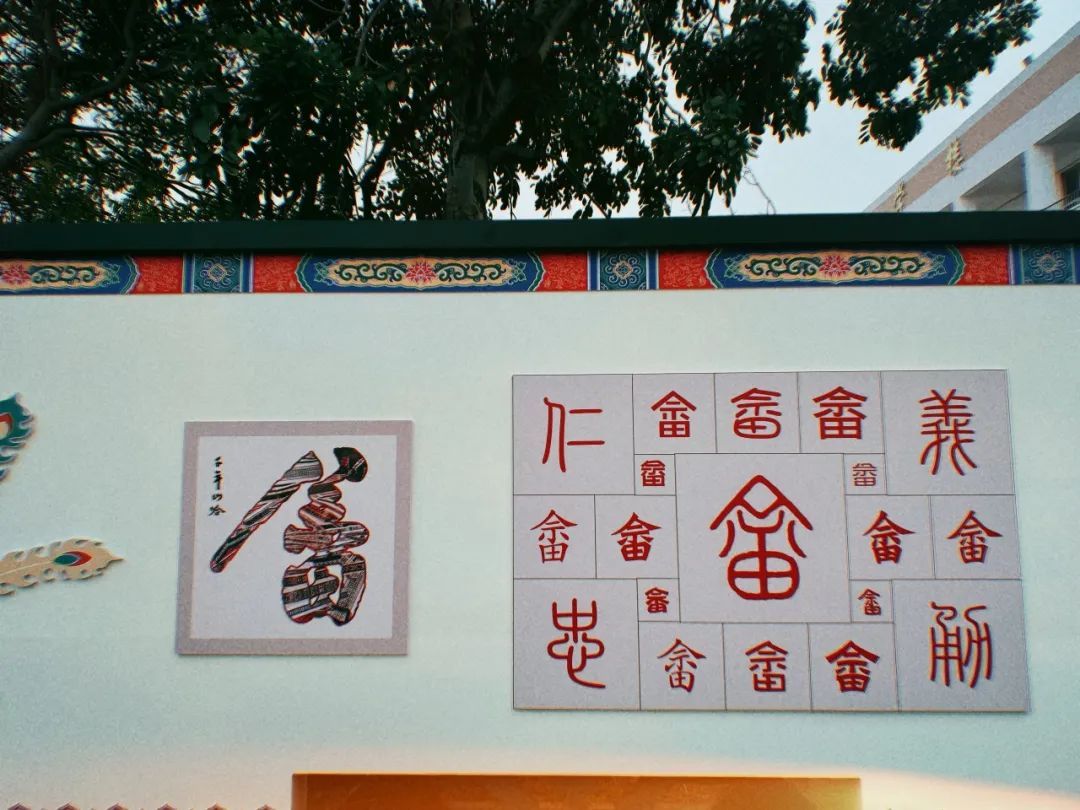 千年山哈
畲
仁畲畲畲義
畲畲
畲畲畲畲畲
畲畲
忠畲畲畲勇